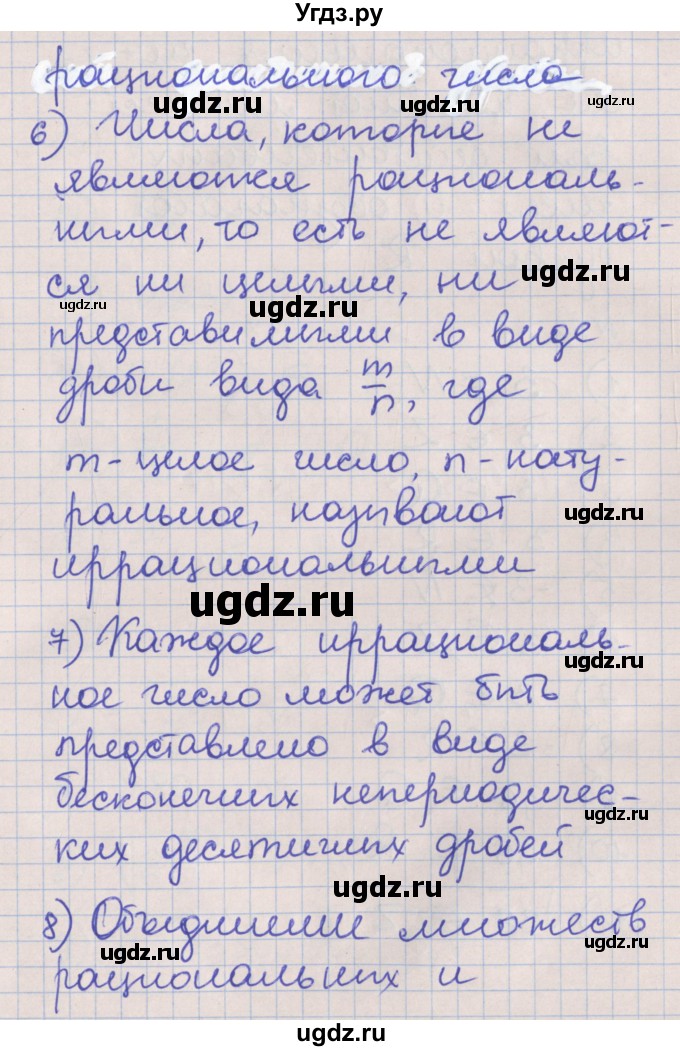 Угдз.ру
рационального числа
ugdz.ru
ugdz.ru
6) Числа, которые не
являются рациональ-
ugdz.ru
ными, то есть не являют-
ся ни целыми, ни
ugdz.ru
ugdz.ru
ugdz.ru
представимыми в виде
дроби вида m/n, где
ugdz.ru
m - целое число, n - нату-
ральное, называют
ugdz.ru
иррациональными
ugdz.ru
7) Каждое иррациональ-
ugdz.ru
ное число может быть
представлено в виде
бесконечных непериодичес-
ugdz.ru
ких десятичных дробей
ugdz.ru
8) Объединение множеств
ugdz.ru
ugdz.ru
рациональных и
ugdz.ru